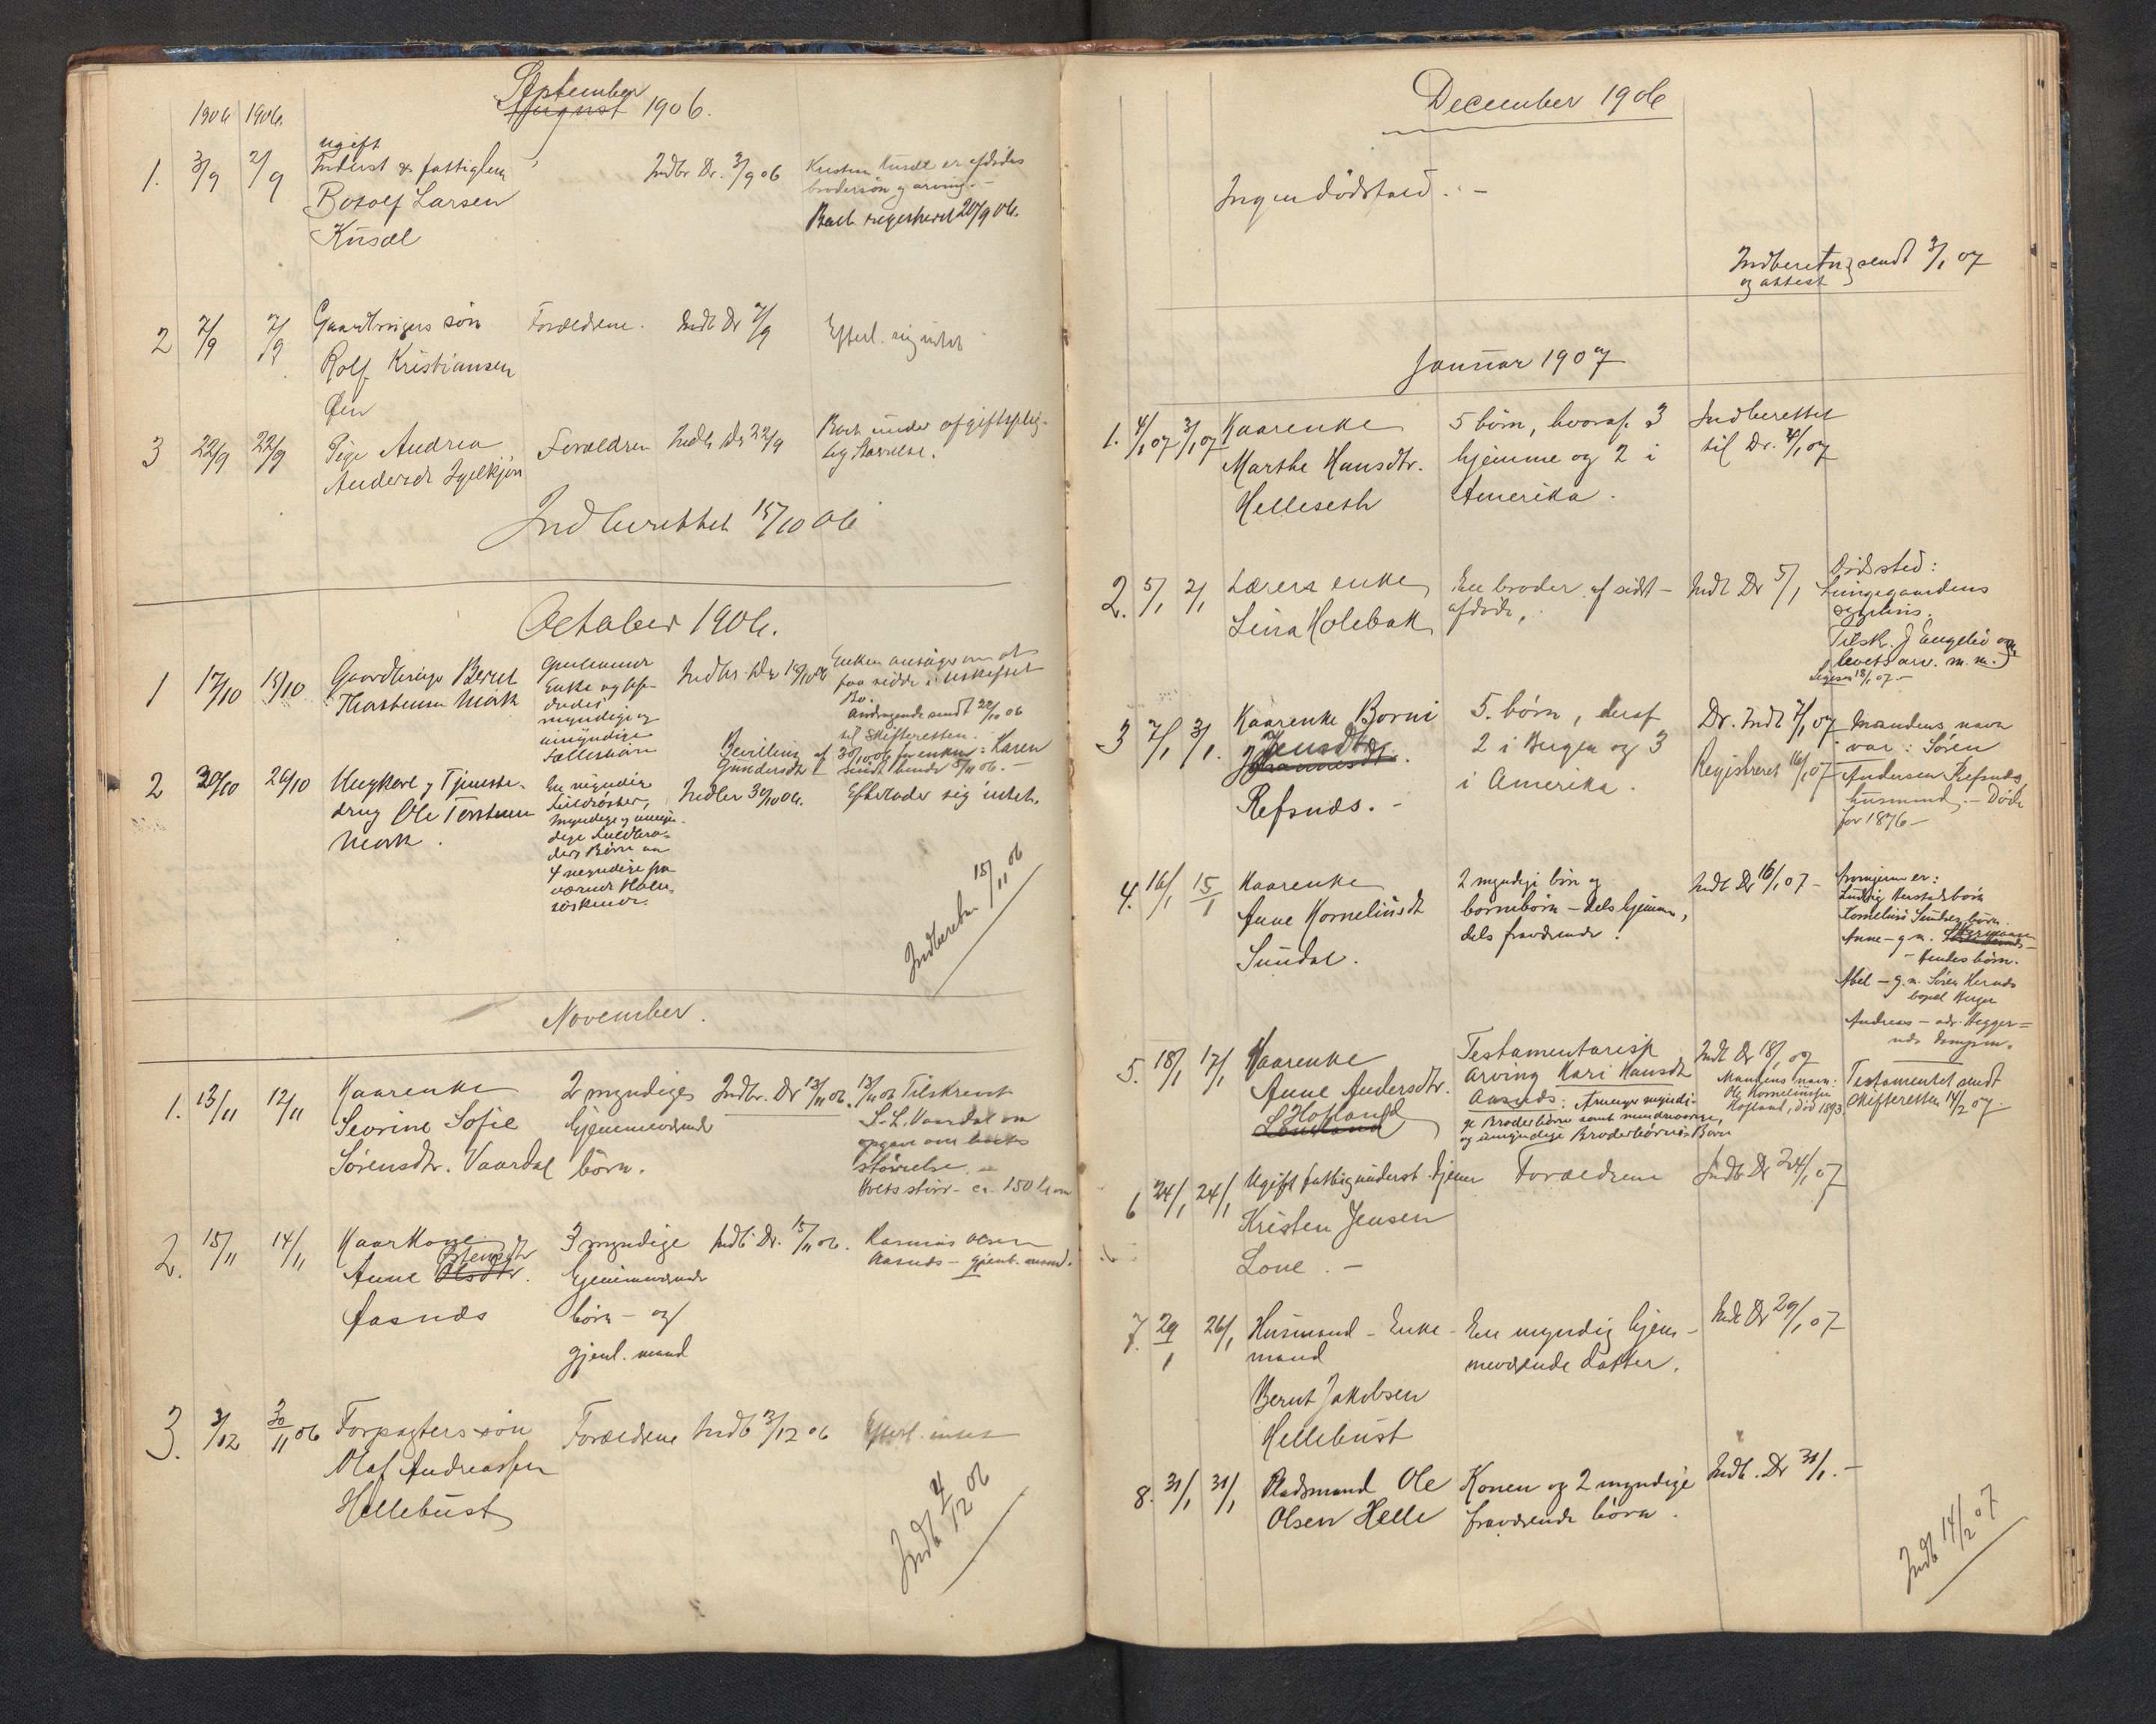 September
August 1906.
1906 1906.
1. 3/9 2/9 ugift
Inderst & fattiglem
Botolf Larsen
Kusæl
Indbr Dr. 3/9 06
Kristian Kusæl er afdødes
brodersøn og arving. -
Boet registreret 20/9 06.
2 7/9 7/9 Gaardbrugers søn
Rolf Kristiansen
Øen
Forældrene.
Indb Dr 7/9
Efterl. sig intet
3 22/9 22/9 Pige Andrea
Andersdr
Forældren
Indb Dr 22/9
Boet under afgiftsplig-
tig Størrelse.
Indberettet 15/10 06
October 1906.
1 17/10 15/10 Gaardbruger Bernt
Thorstensen Mork
Gjenlevende
Enke og
myndige og
umyndige
Fællesbørn
Indbr. Dr
Enken ansøger om at
faa sidde i uskiftet
Bo.
Andragende sendt 22/10 06
til Skifteretten.
Bevilling af 30/10 06 for enken: Karen
Gundersdtr sendt hende 5/11 06. -
2 30/10 26/10 Ungkarl og Tjeneste-
dreng Ole Torstensen
Mork.
En myndig
Myndige og umyn-
dige
ders Børn
4 myndige fra-
værende Halv-
søskende.
Indbr 30/10 06.
Efterlader sig intet.
Indberettet 15/11 06
November.
1. 13/11 12/11 Kaarenke
Severine Sofie
Sørensdtr. Vaardal
2 myndige
hjemmeværende
børn.
Indbr. Dr 13/11 06.
13/11 06 Tilskrevet
S. L. Vaardal om
opgave over boets
størrelse. -
Boets størr - ca. 150 kr
2. 15/11 14/11 Kaarkone
Anne Olsdtr.
Aasnæs
3 myndige
hjemmeværende
børn - og
gjenl. mand
Indb. Dr. 15/11 06.
Rasmus Olsen
Aasnæs - gjenl. mand.
3. 3/12 30/11 06 Forpagters søn
Olaf Andreassen
Hellebust
Forældrene
Indb 3/12 06
Efterl. intet
Indb 4/12 06
December 1906
Ingen dødsfald. -
Indberetn.
og attest } sendt 3/1 07
Januar 1907
1. 4/1 07 3/1 07 Kaarenke
Marthe Hansdtr.
Helleseth
5 børn, hvoraf 3
hjemme og 2 i
Amerika.
Indberettet
til Dr. 4/1 07
2. 5/1 2/1 Lærers enke
Lina Holebak
En broder af sidst-
afdøde.
Indb Dr 5/1
Dødssted:
Lungegaardens
sygehus.
Tilsk. J Engelsø om
boets arv. m. m.
18/1 07. -
3 7/1 3/1. Kaarenke Borni
Jensdtr
Johannesdtr.
Refsnæs. -
5. børn, deraf
2 i Bergen og 3
i Amerika.
Dr. Indb 7/1 07
Registreret 16/1 07
Mandens navn
var: Søren
Andersen Refsnæs
husmand. - Døde
før 1876 -
4. 16/1 15/1 Kaarenke
Anne Kornelinsdt
Sundal.
2 myndige børn og
børnebørn - dels hjemme,
dels fraværende.
Indb Dr 16/1 07 -
Arvingerne er:
Ludvig Herstads børn
Kornelius Sundals børn.
Anne - g. m.
- Aendes børn.
Abel - g. m. Søren Hernæs
bopæl Bergen
Andreas - adr. Hegger=
næs
5. 18/1 17/1 Kaarenke
Anne Andersdtr.
Hofland
Testamentarisk
arving Kari Hansdt
Aasnæs: Arvinger myndi-
ge Broderbørn samt
og umyndige Broderbørns Børn
Indb Dr 18/1 07
Mandens navn:
Ole Korneliussen
Hofland, død 1893.
Testamentet sendt
Skifteretten 14/2 07.
6 24/1 24/1 Ugift fattigunderst. tjener
Kristen Jensen
Lone. -
Forældrene
Indb Dr 24/1 07
7. 29/1 26/1 Husmand - Enke-
mand
Bernt Jakobsen
Hellebust
En myndig hjem-
meværende datter.
Indb Dr 29/1 07
8. 31/1 31/1 Pladsmand Ole
Olsen Helle
Konen og 2 myndige
fraværende børn.
Indb. Dr 31/1. -
Indb 14/2 07